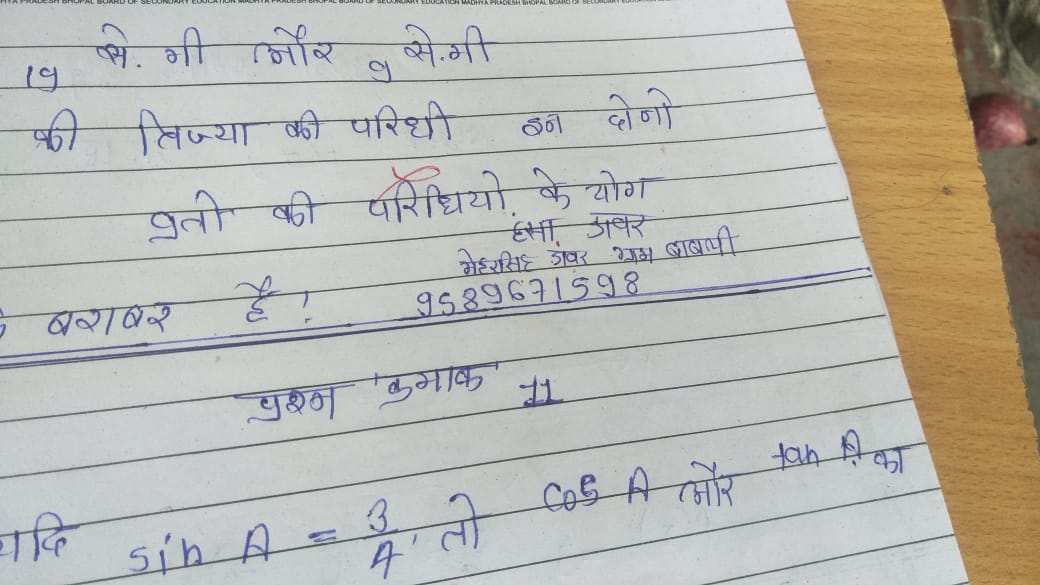 HYA PRADESH BHOPAL BOARD OF SECONDARY EDUCATION MADHYA PRADESH BHOPAL BOARD OF SECONDARY EDUCATION MADHYA PRADESH BHOPAL BOARD OF SECONDARY
19 से. मी और 9 से.मी
की त्रिज्या की परिधी इन दोनो
व्रतो की परिधियो के योग
मेहरसिह डावर ग्राम
के बराबर है!
9589671598
प्रश्न क्रमाक 11
यदि sin A = 3/4, तो cos A और tan A का